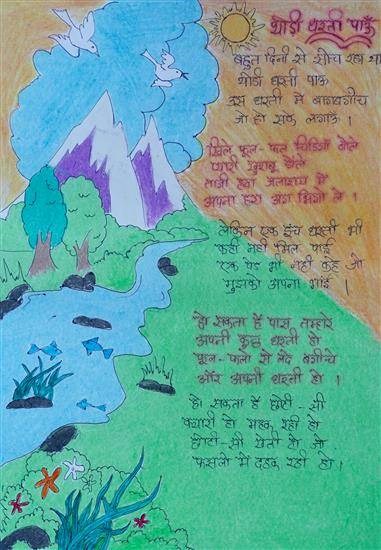 थोडी धरती पाऊँ
बहुत दिनों से सोच रहा था
थोडी धरती पाऊ
उस धरती में बागबगीच
जो हो सके लगाऊँ ।
खिले फूल-फल चिडियाँ बोले
प्यारी खुशबू डोले
ताजी हवा जलाशय में
अपना हरा अंग भिगो ले ।
लेकिन एक इंच धरती भी
कही नही मिल पाई
एक पेड भी नही कहे जो
मुझको अपना भाई ।
हो सकता है पास तुम्हारे
अपनी कुछ धरती हो
फूल-फलो से लदे बगीचे
और अपनी धरती हो ।
हो सकता है छोटी-सी
क्यारी हो महक रही हो
छोटी-सी खेती हो जो
फसलो में दहक रही हो ।